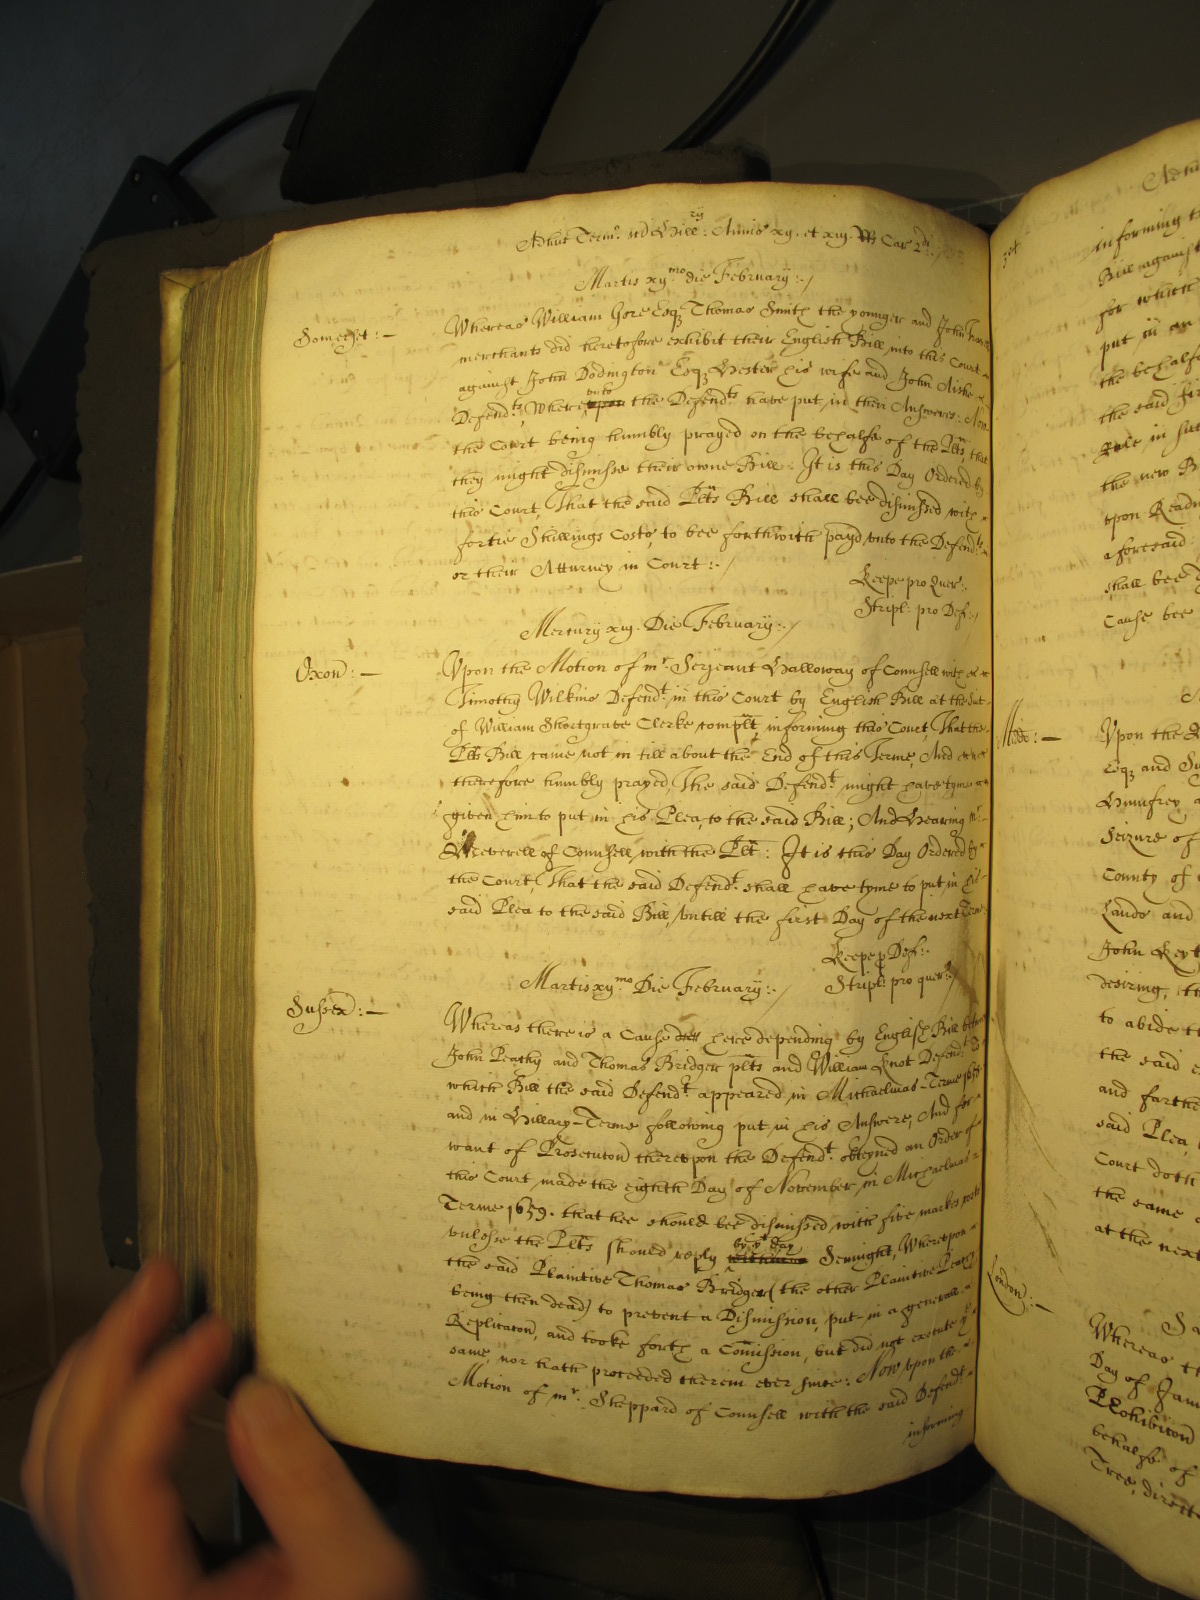 Adhuc Term: Hill:ry Annis xij. et xiij. RRs Car 2di:
Martis xij:mo die February:./
Somerset:—
Whereas William Gore Esqz Thomas Smith the younger and John
merchants did heretofore exhibit their English Bill into this Court
against John Dodington Esqz Hester his wife and John Aishe
Defend:ts, Where upon unto the Defend:ts have put in their Answeres: Now
the Court being humbly prayed on the behalfe of the Plts, that
they might dismisse their owne Bill: It is this Day Ordered by
this Court, That the said Plts Bill shall bee dismissed with
fortie Shillings Costs, to bee forthwith payd unto the Defend:ts
or their Atturney in Court:./
Keepe pro Quer:
Stripl: pro Def:/
Mercury xiij. Die February:./
Oxon:—
Upon the Motion of mr: Serjeant Halloway of Counsell with
Timothy Wilkins Defend:t in this Court by English Bill at the Sut
of William Shortgrave Clerke complt, informing this Court, That the
Plts Bill came not in till about the End of this Terme, And
therefore humbly prayed, The said Defend:t might have tyme
given him to put in his Plea, to the said Bill; And Hearing mr:
Weverell of Counsell, with the Plt: It is this Day Ordered by
the Court, That the said Defend:t shall have tyme to put in his
said Plea to the said Bill, untill the first Day of the next Terme
Keepe p Def:
Stripl: pro quer:
Martis xij:mo Die February:./
Sussex:—
Whereas there is a Cause here depending by English Bill betweene
John Peachy and Thomas Bridger plts and William Knot Defend:t To
which Bill the said Defend:t appeared in Michaelmas-Terme 1658
and in Hillary-Terme following put in his Answere, And for
want of Prosecucon thereupon the Defend:t obteyned an Order of
this Court made the eighth Day of November in Michaelmas
Terme 1659. that hee should bee dismissed with five markes costs
unlesse the Plts should reply by ye: day Sennight, Whereupon
the said Plaintive Thomas Bridger (the other Plaintive Peachy
being then dead) to prevent a Dismission, put in a generall
Replicacon, and tooke forth a Comission, but did not execute ye
same, nor hath proceeded therein ever since: Now upon the
Motion of mr: Sheppard of Counsell with the said Defend:t
informing
informing
Bill against
for which
put in an
the behalfe
the said
Rule in
the new B
upon Readi
aforesaid
shall bee
Cause bee
Midd:—
Upon the
Esqz and
Humfrey
Seizure of
County of
Lands and
John
desiring,
to abide
the said
and farthe
said Plea
Court doth
the same
at the next
London:—
Whereas
Day of Jan
Prohibicon
behalfe of